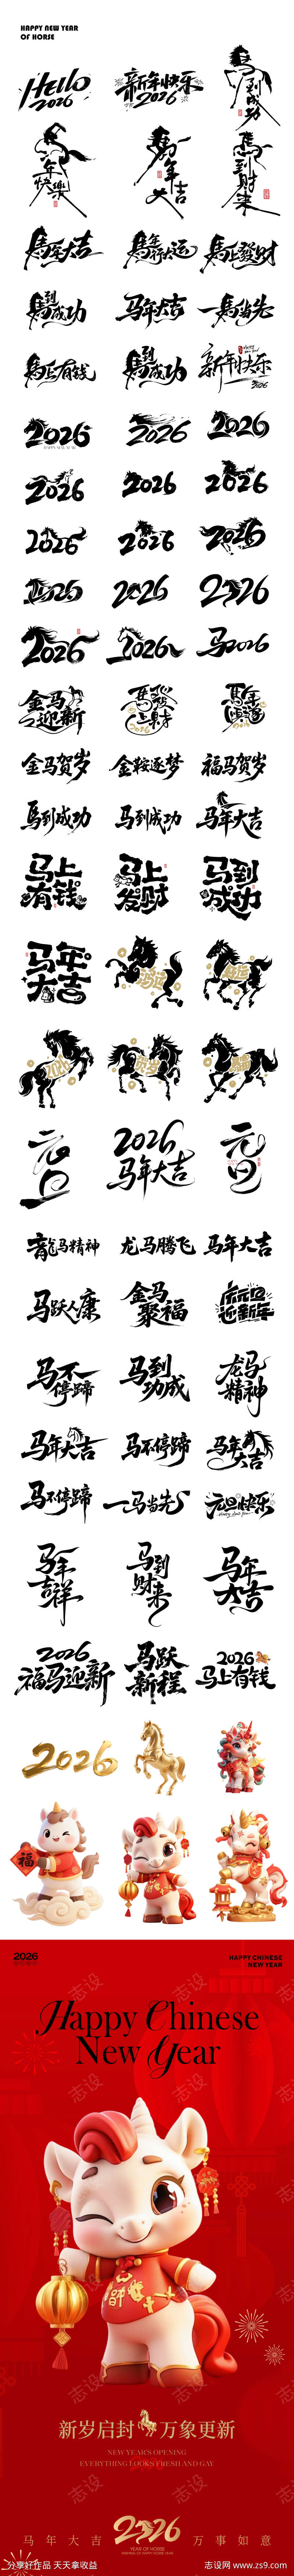 HAPPY NEW YEAR
OF HORSE
HELLO
2026
新年快乐
2026
馬到成功
馬年快樂
馬年大吉
馬到財来
馬年大吉
馬年行大运
馬上發財
馬到成功
马年大吉
一馬当先
馬上有钱
馬到成功
新年快乐
2026
2026
HAPPY NEW YEAR
2026
2026
2026
2026
2026
2026
2026
2026
2026
2026
2026
2026
2026
马2026
金马迎新
2026
2026
金马贺岁
金鞍逐梦
福马贺岁
馬到成功
马到成功
马年大吉
马上有钱
马上发财
马到成功
马年大吉
2026
贺岁
元旦
2026
马年大吉
元旦
龍马精神
龙马腾飞
马年大吉
马跃人康
金马聚福
庆元旦
迎新年
马不停蹄
马到功成
龙马精神
马年大吉
马不停蹄
马年大吉
马不停蹄
一马当先
元旦快乐
Happy New Year
马年吉祥
马到财来
马年大吉
2026
福马迎新
马跃新程
2026
马上有钱
2026
福
2026
HAPPY CHINESE
NEW YEAR
Happy Chinese
New Year
志设
新岁启封 万象更新
NEW YEAR'S OPENING
EVERYTHING LOOKS FRESH AND GAY
马年大吉
2026
YEAR OF HORSE
万事如意
分享好作品 天天拿收益
志设网 www.zs9.com